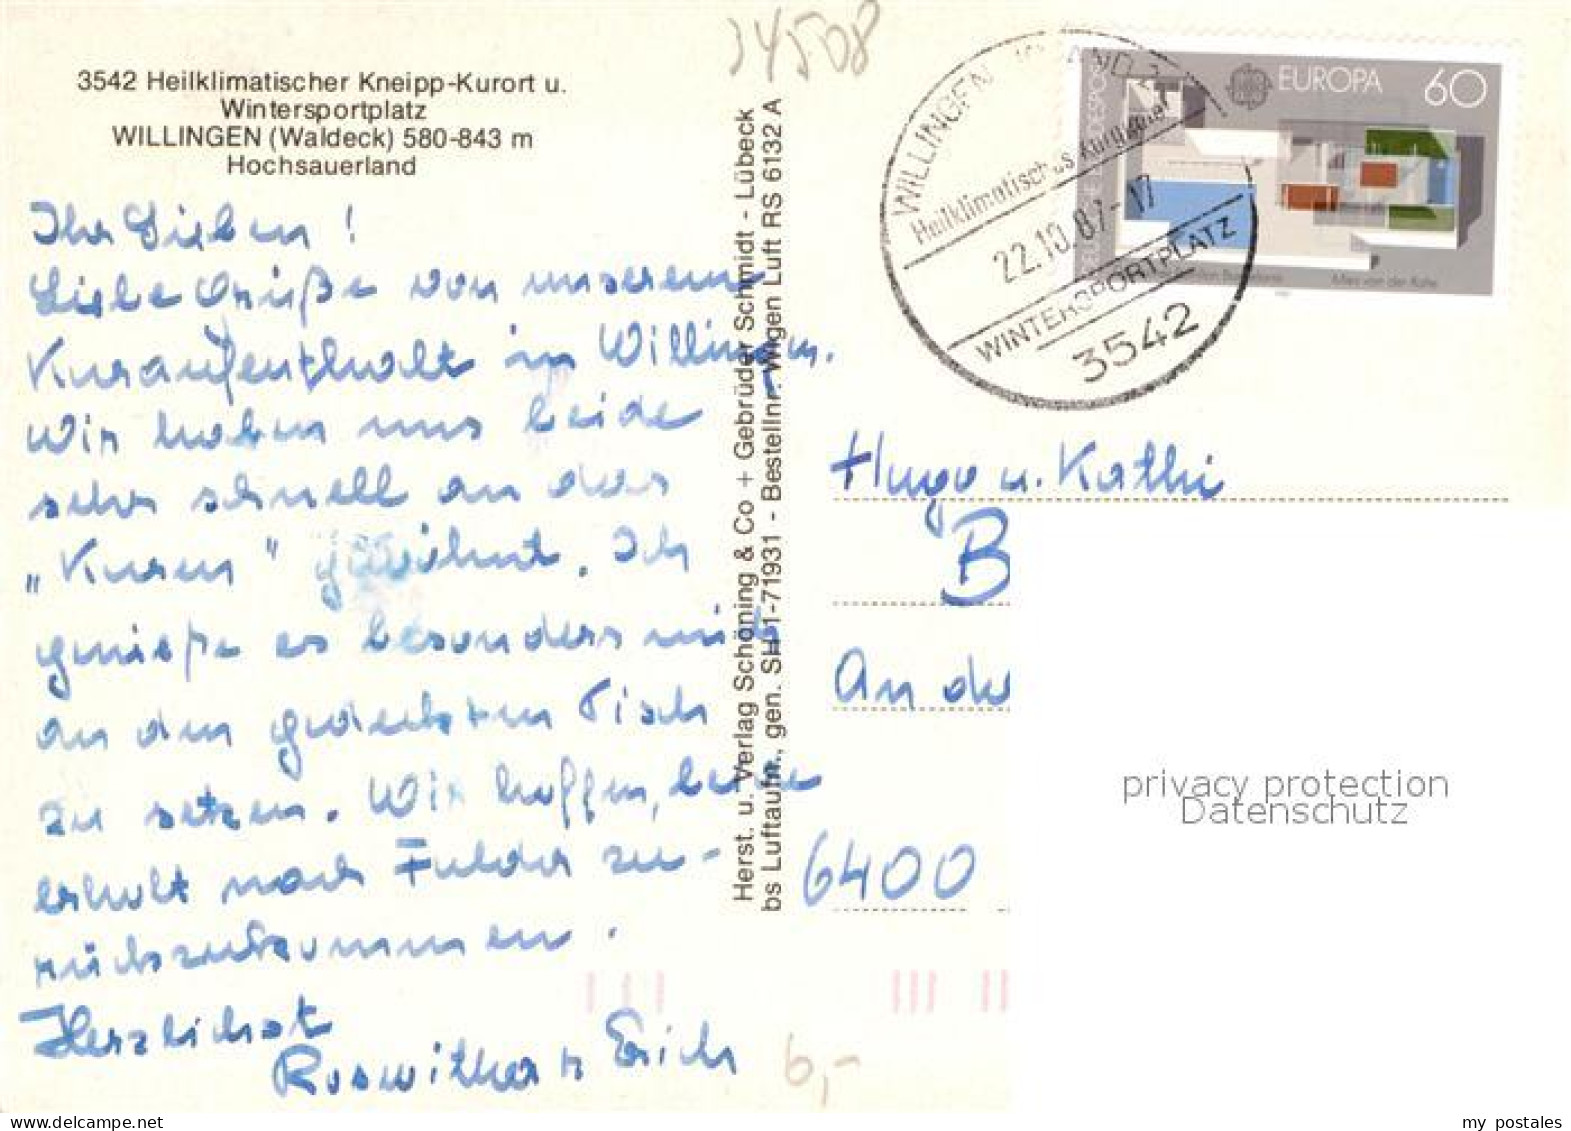 34508
3542 Heilklimatischer Kneipp-Kurort u.
Wintersportplatz
WILLINGEN (Waldeck) 580-843 m
Hochsauerland
Ihr Lieben!
Liebe Grüße von unserem
Kuraufenthalt in Willingen.
Wir haben uns beide
sehr schnell an das
„Kuren" gewöhnt. Ich
genieße es besonders mich
an den gedeckten Tisch
zu setzen. Wir hoffen,
erholt nach Fulda zu-
rückzukommen.
Herzlichst
Roswitha u Erich
Herst. u. Verlag Schöning & Co + Gebrüder Schmidt - Lübeck
bs Luftaufn., gen. SH 1-71931 - Bestellnr. Wigen Luft RS 6132 A
WILLINGEN
Heilklimatisches Kurgebiet
22.10.87-17
WINTERSPORTPLATZ
3542
EUROPA 60
Mies van der Rohe
Hugo u. Kathi
B
An de
6400
privacy protection
Datenschutz
6,-
my_postales